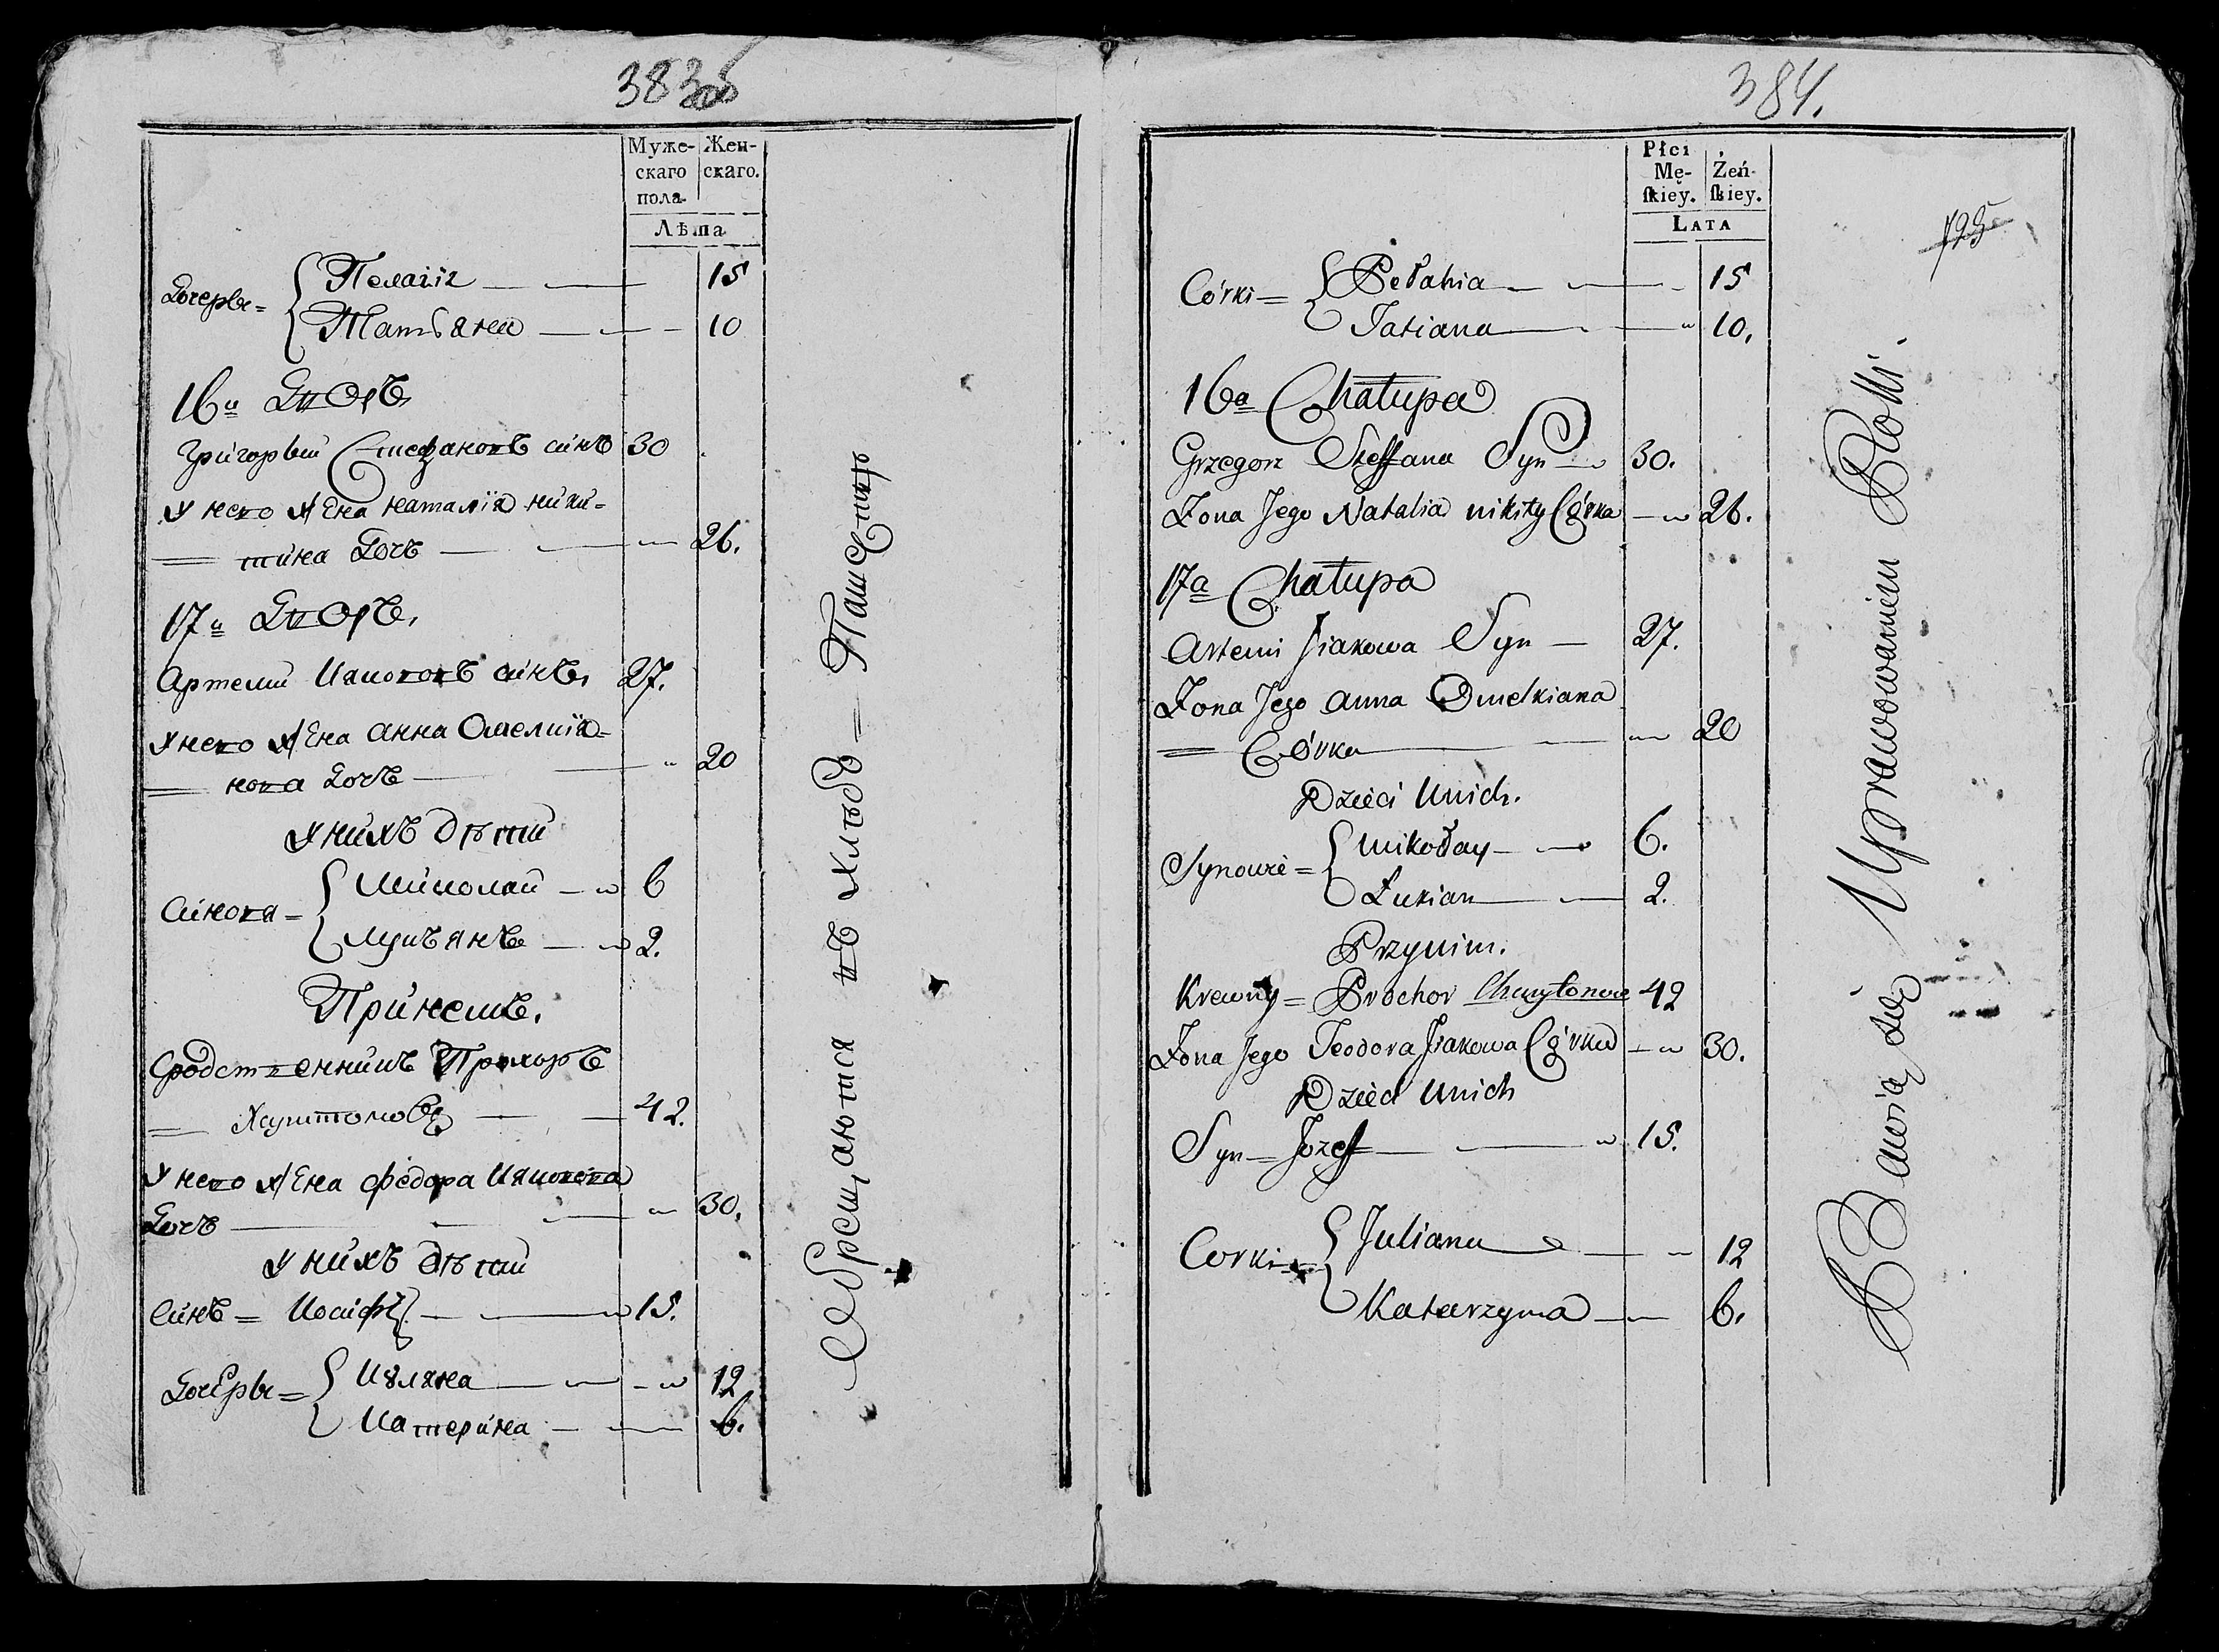 383об
Муже-
скаго
пола.
Жен-
скаго.
Лѣта
Дочеръи = Пелагія 15
Татьяна 10
16й Дворъ
Григорьий Стефановъ синъ 30
У него жена наталія ники-
= тина дочъ 26.
17й Дворъ,
Артемий Иаковъ синъ, 27.
У него жена анна Омелкія-
= нова дочъ 20
У нихъ дѣти
Синовя = Миколай 6
Лукъянъ 2.
Принемъ,
Сродственникъ Прохоръ
= Харитоновъ 42.
У него жена федора Иаковова
дочъ 30.
У нихъ дѣти
Синъ = Иосифъ 15.
Дочеръи = Иуляна 12
Катерина 6.
Обрещаются въ хлѣбо = Пашество
384.
Płci
Mę-
skiey.
Żeń-
skiey.
LATA
193
Córki = Pełahia 15
Tatiana 10,
16a Chałupa
Grzegorz Steffana Syn 30.
Zona Jego Natalia nikity Córka 26.
17a Chałupa
Artemi Jiakowa Syn 27.
Zona Jego anna Omelkiana
= Córka 20
Dzieci Unich.
Synowie = Mikołay 6.
Łukian 2.
Przynim.
Krewny = Prochor Charytonow 42
Zona Jego Teodora Jiakowa Córka 30.
Dzieci Unich
Syn = Jozeff 15.
Corki = Juliana 12
Katarzyna 6.
Bawią się Uprawowaniem Rolli.